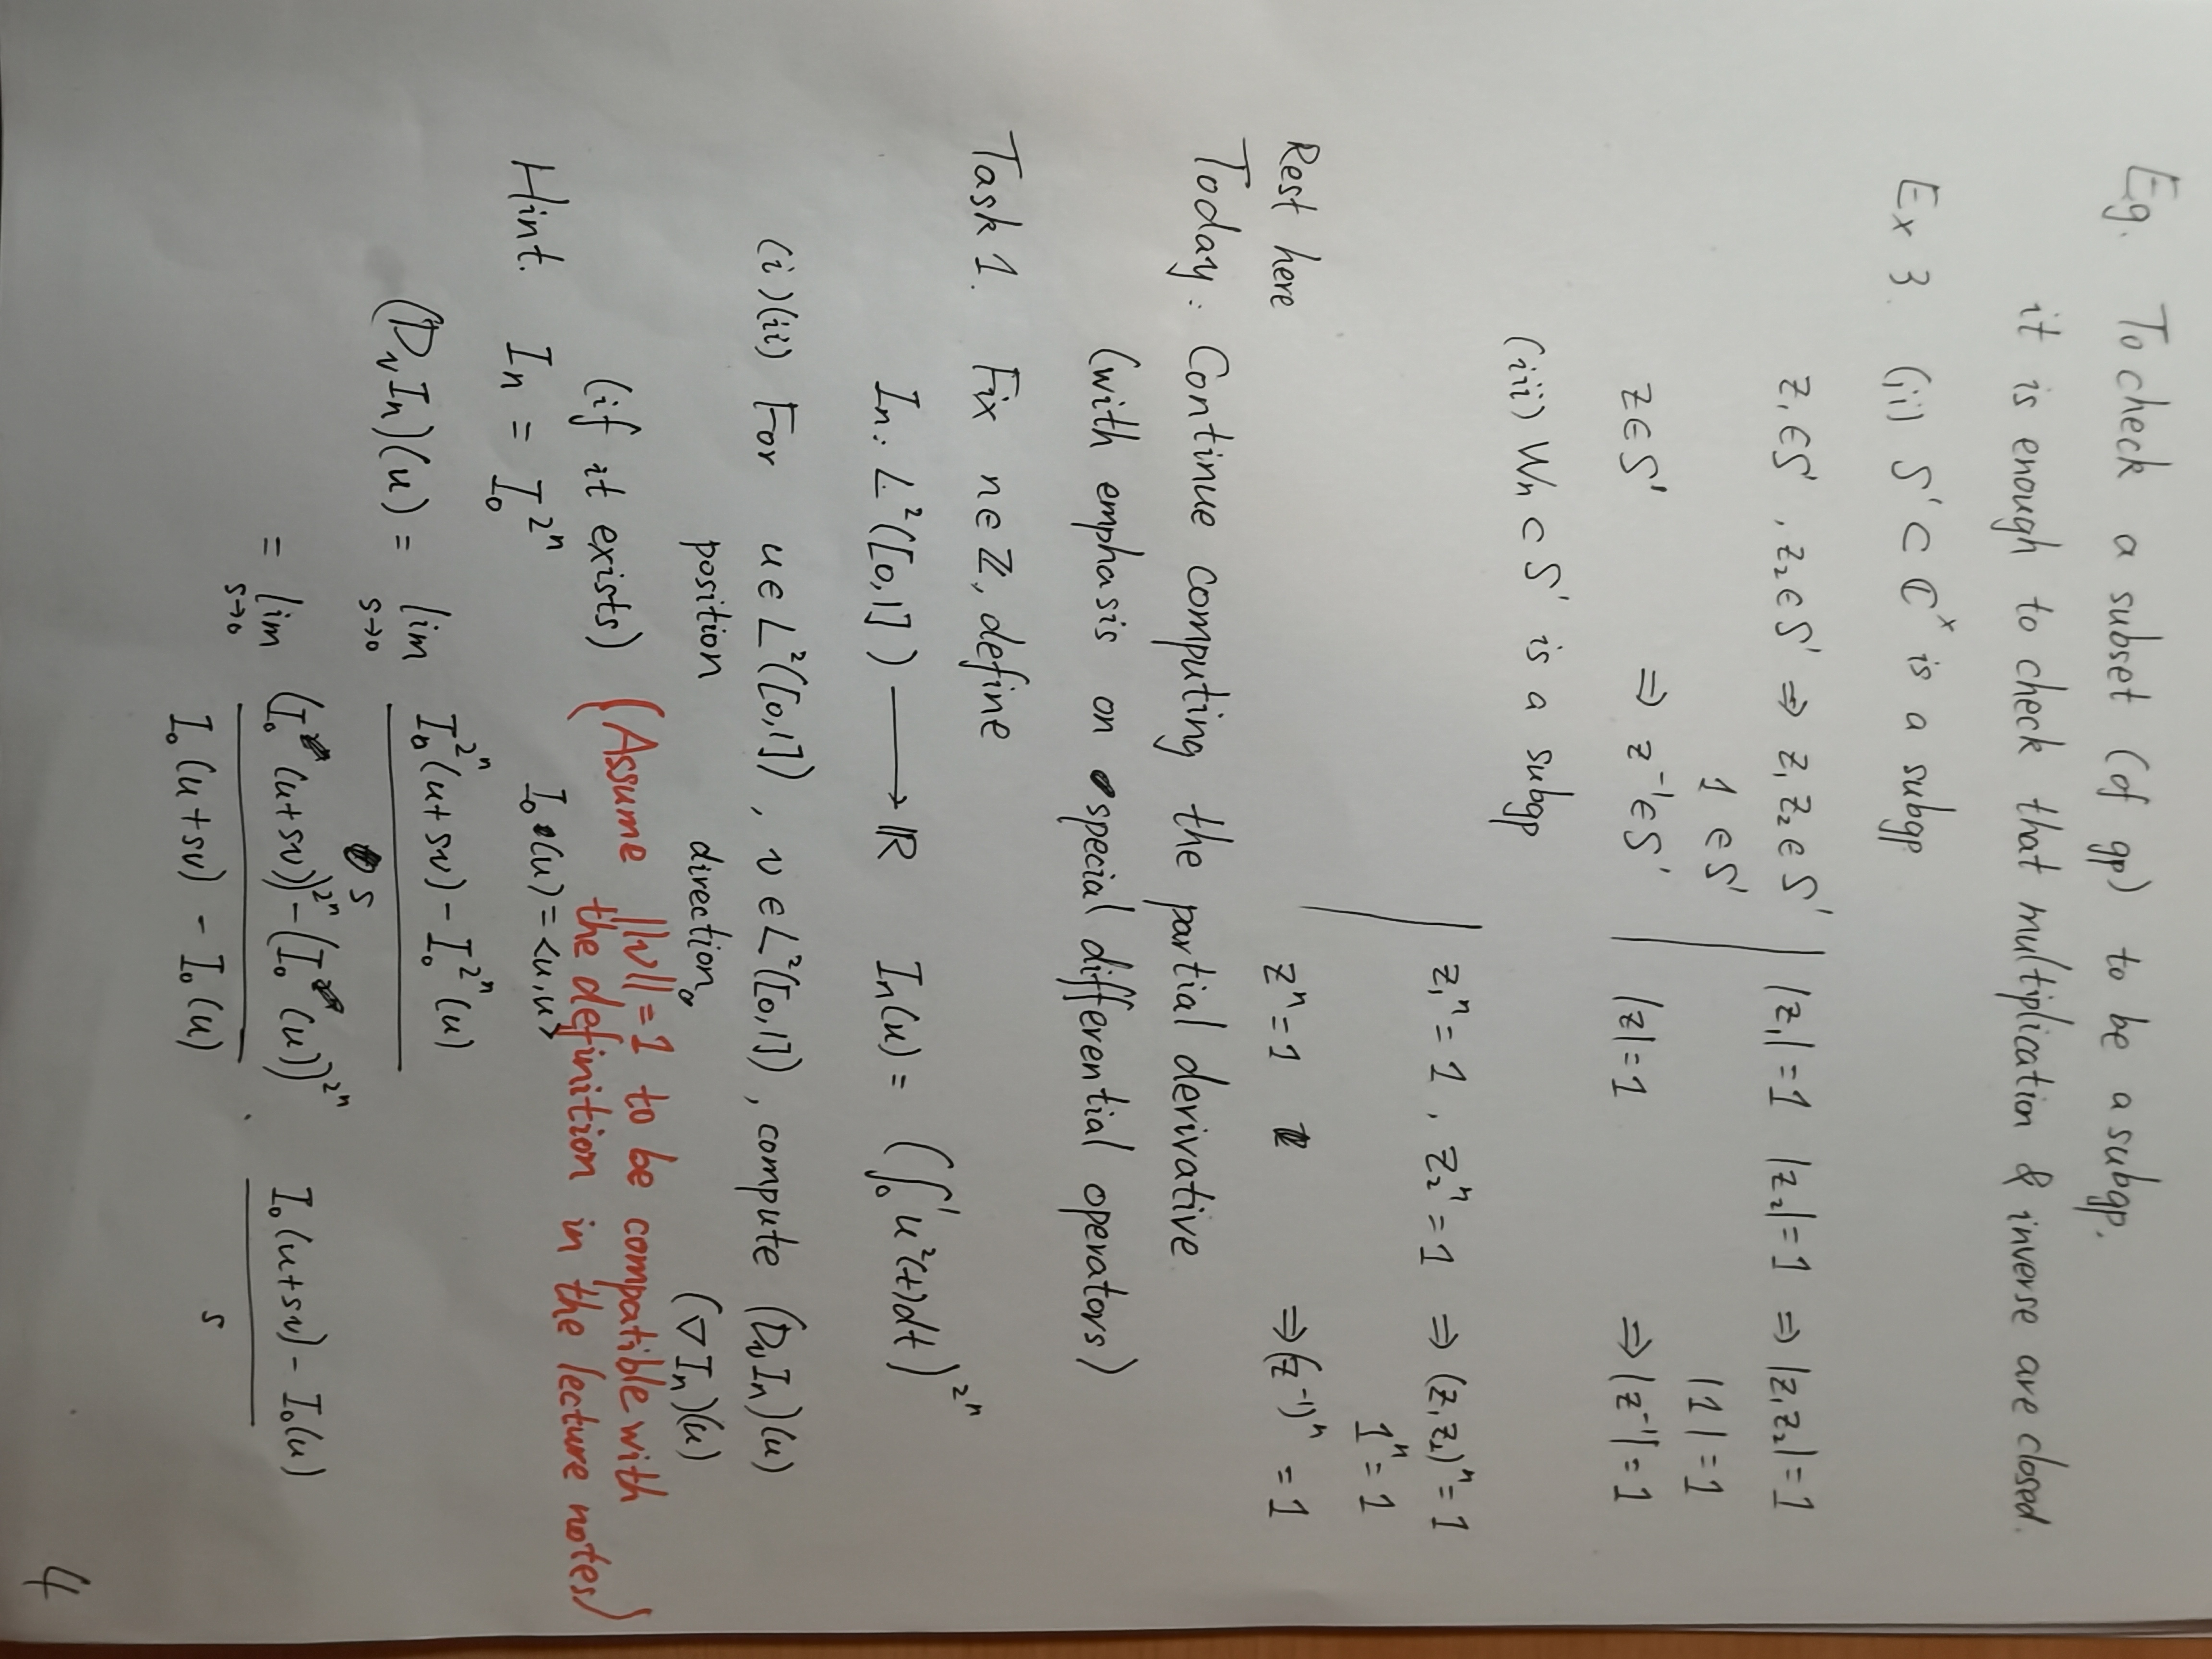 Eg. To check a subset (of gp) to be a subgp,
it is enough to check that multiplication & inverse are closed.
Ex 3. (ii) S¹ ⊂ ℂ^× is a subgp
z₁ ∈ S¹, z₂ ∈ S¹ ⇒ z₁z₂ ∈ S¹ | |z₁| = 1 |z₂| = 1 ⇒ |z₁z₂| = 1
1 ∈ S¹ |1| = 1
z ∈ S¹ ⇒ z⁻¹ ∈ S¹ |z| = 1 ⇒ |z⁻¹| = 1
(iii) Wn ⊂ S¹ is a subgp
z₁ⁿ = 1, z₂ⁿ = 1 ⇒ (z₁z₂)ⁿ = 1
1ⁿ = 1
Rest here
zⁿ = 1 ⇒ (z⁻¹)ⁿ = 1
Today: Continue computing the partial derivative
(with emphasis on special differential operators)
Task 1. Fix n ∈ ℤ, define
In: L²([0,1]) ⟶ ℝ In(u) = (∫₀¹ u²(t)dt)^{2^n}
(i)(ii) For u ∈ L²([0,1]), v ∈ L²([0,1]), compute (D_v In)(u)
position direction. (∇In)(u)
(if it exists) (Assume ||v|| = 1 to be compatible with
the definition in the lecture notes)
Hint. In = I₀^{2^n} I₀(u) = <u,u>
(D_v In)(u) = lim_{s→0} (I₀^{2^n}(u+sv) - I₀^{2^n}(u)) / s
= lim_{s→0} ((I₀(u+sv))^{2^n} - (I₀(u))^{2^n}) / (I₀(u+sv) - I₀(u)) · (I₀(u+sv) - I₀(u)) / s
4